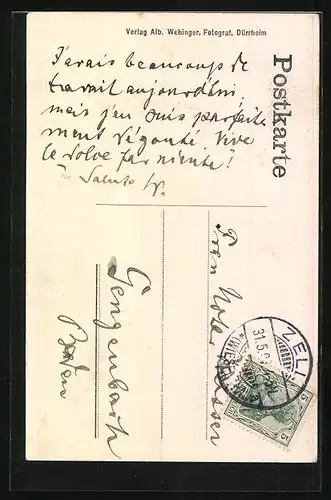 Verlag Alb. Wehinger, Fotograf, Dürrheim
Postkarte
J'avais beaucoup de
travail aujourd'hui,
mais j'en suis parfaite
ment dégouté. Vive
le dolce far niente!
Saluto
Frau Notar
Gengenbach
Baden
ZELL
31.5.
5
5